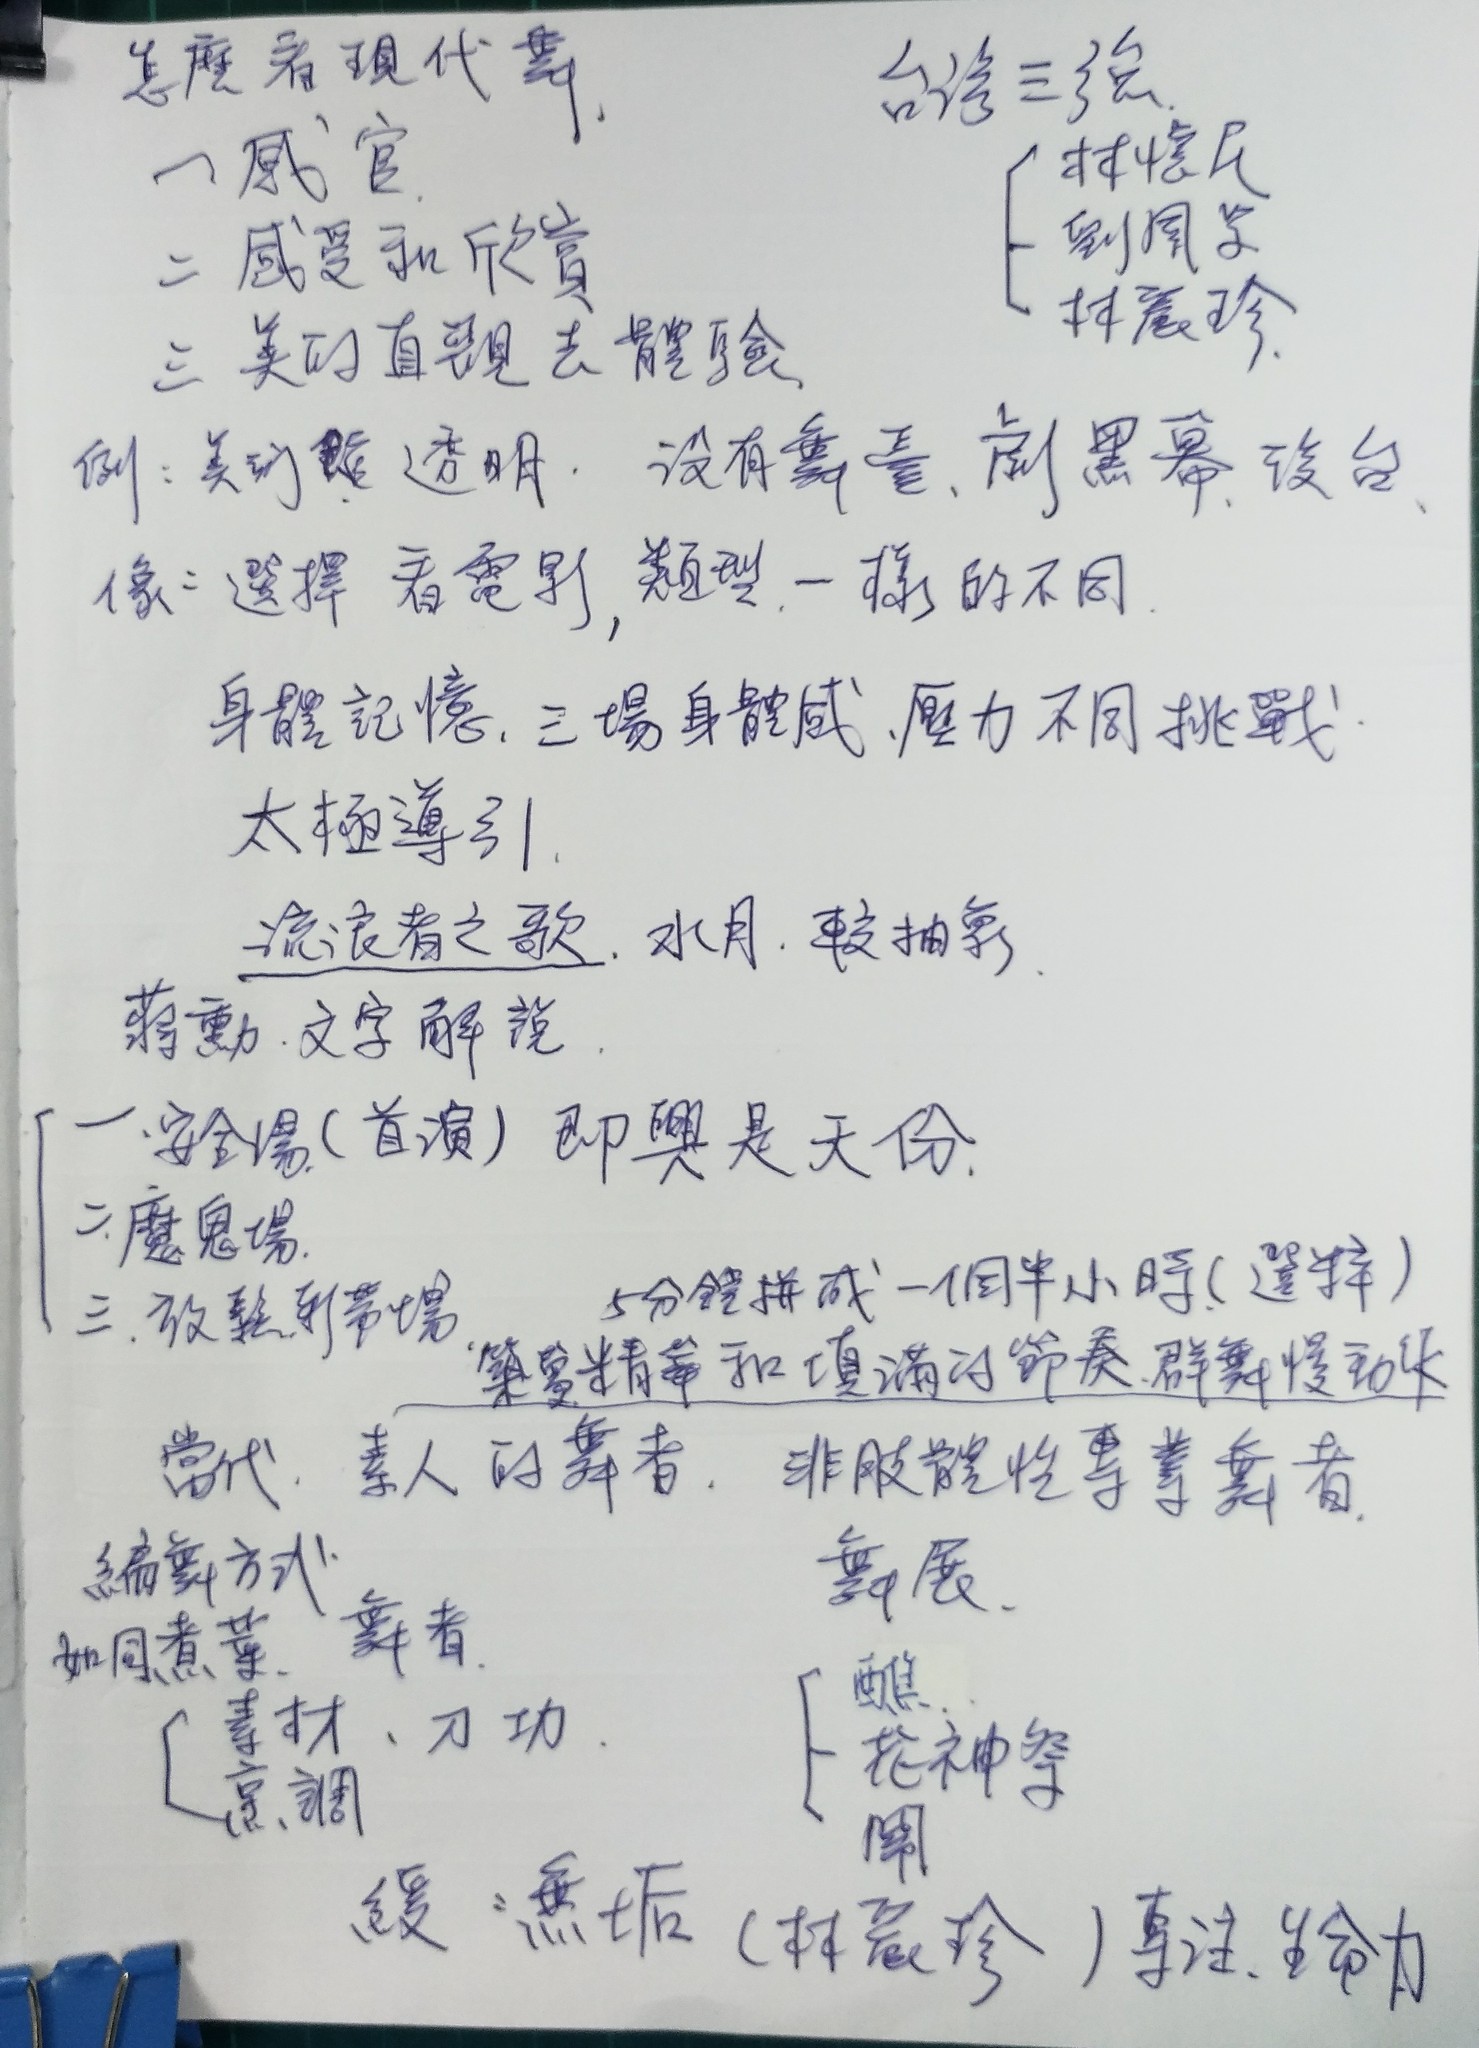 怎麼看現代舞
一 感官
二 感受和欣賞
三 美的直觀去體驗
台灣三強
林懷民
劉鳳學
林麗珍
例：美術館透明．沒有舞臺、劇黑幕、後台、
像：選擇 看電影，類型．一樣的不同．
身體記憶．三場身體感、壓力不同挑戰．
太極導引．
流浪者之歌．水月．較抽象．
蔣勳．文字解說．
一．安全場（首演）即興是天份．
二．魔鬼場．
三．放鬆 場
5分鐘拼成一個半小時（選粹）
精華和填滿的節奏．群舞慢動作
當代．素人的舞者．非肢體性專業舞者．
編舞方式
如同煮菜．舞者．
素材、刀功．
烹調
舞展．
醮
花神祭
觀
緩：無垢（林麗珍）專注、生命力